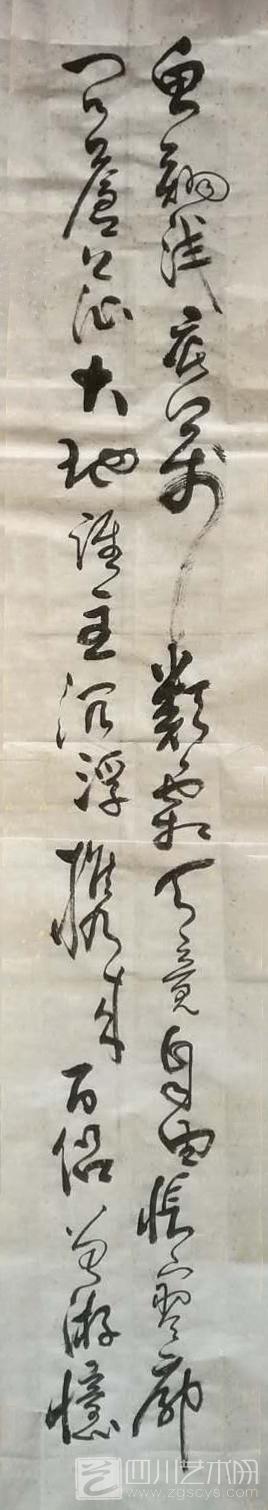 魚翔淺底萬類霜天竞自由悵寥廓
问蒼茫大地誰主沉浮携来百侣曾游憶
四川艺术网
www.zgscys.com